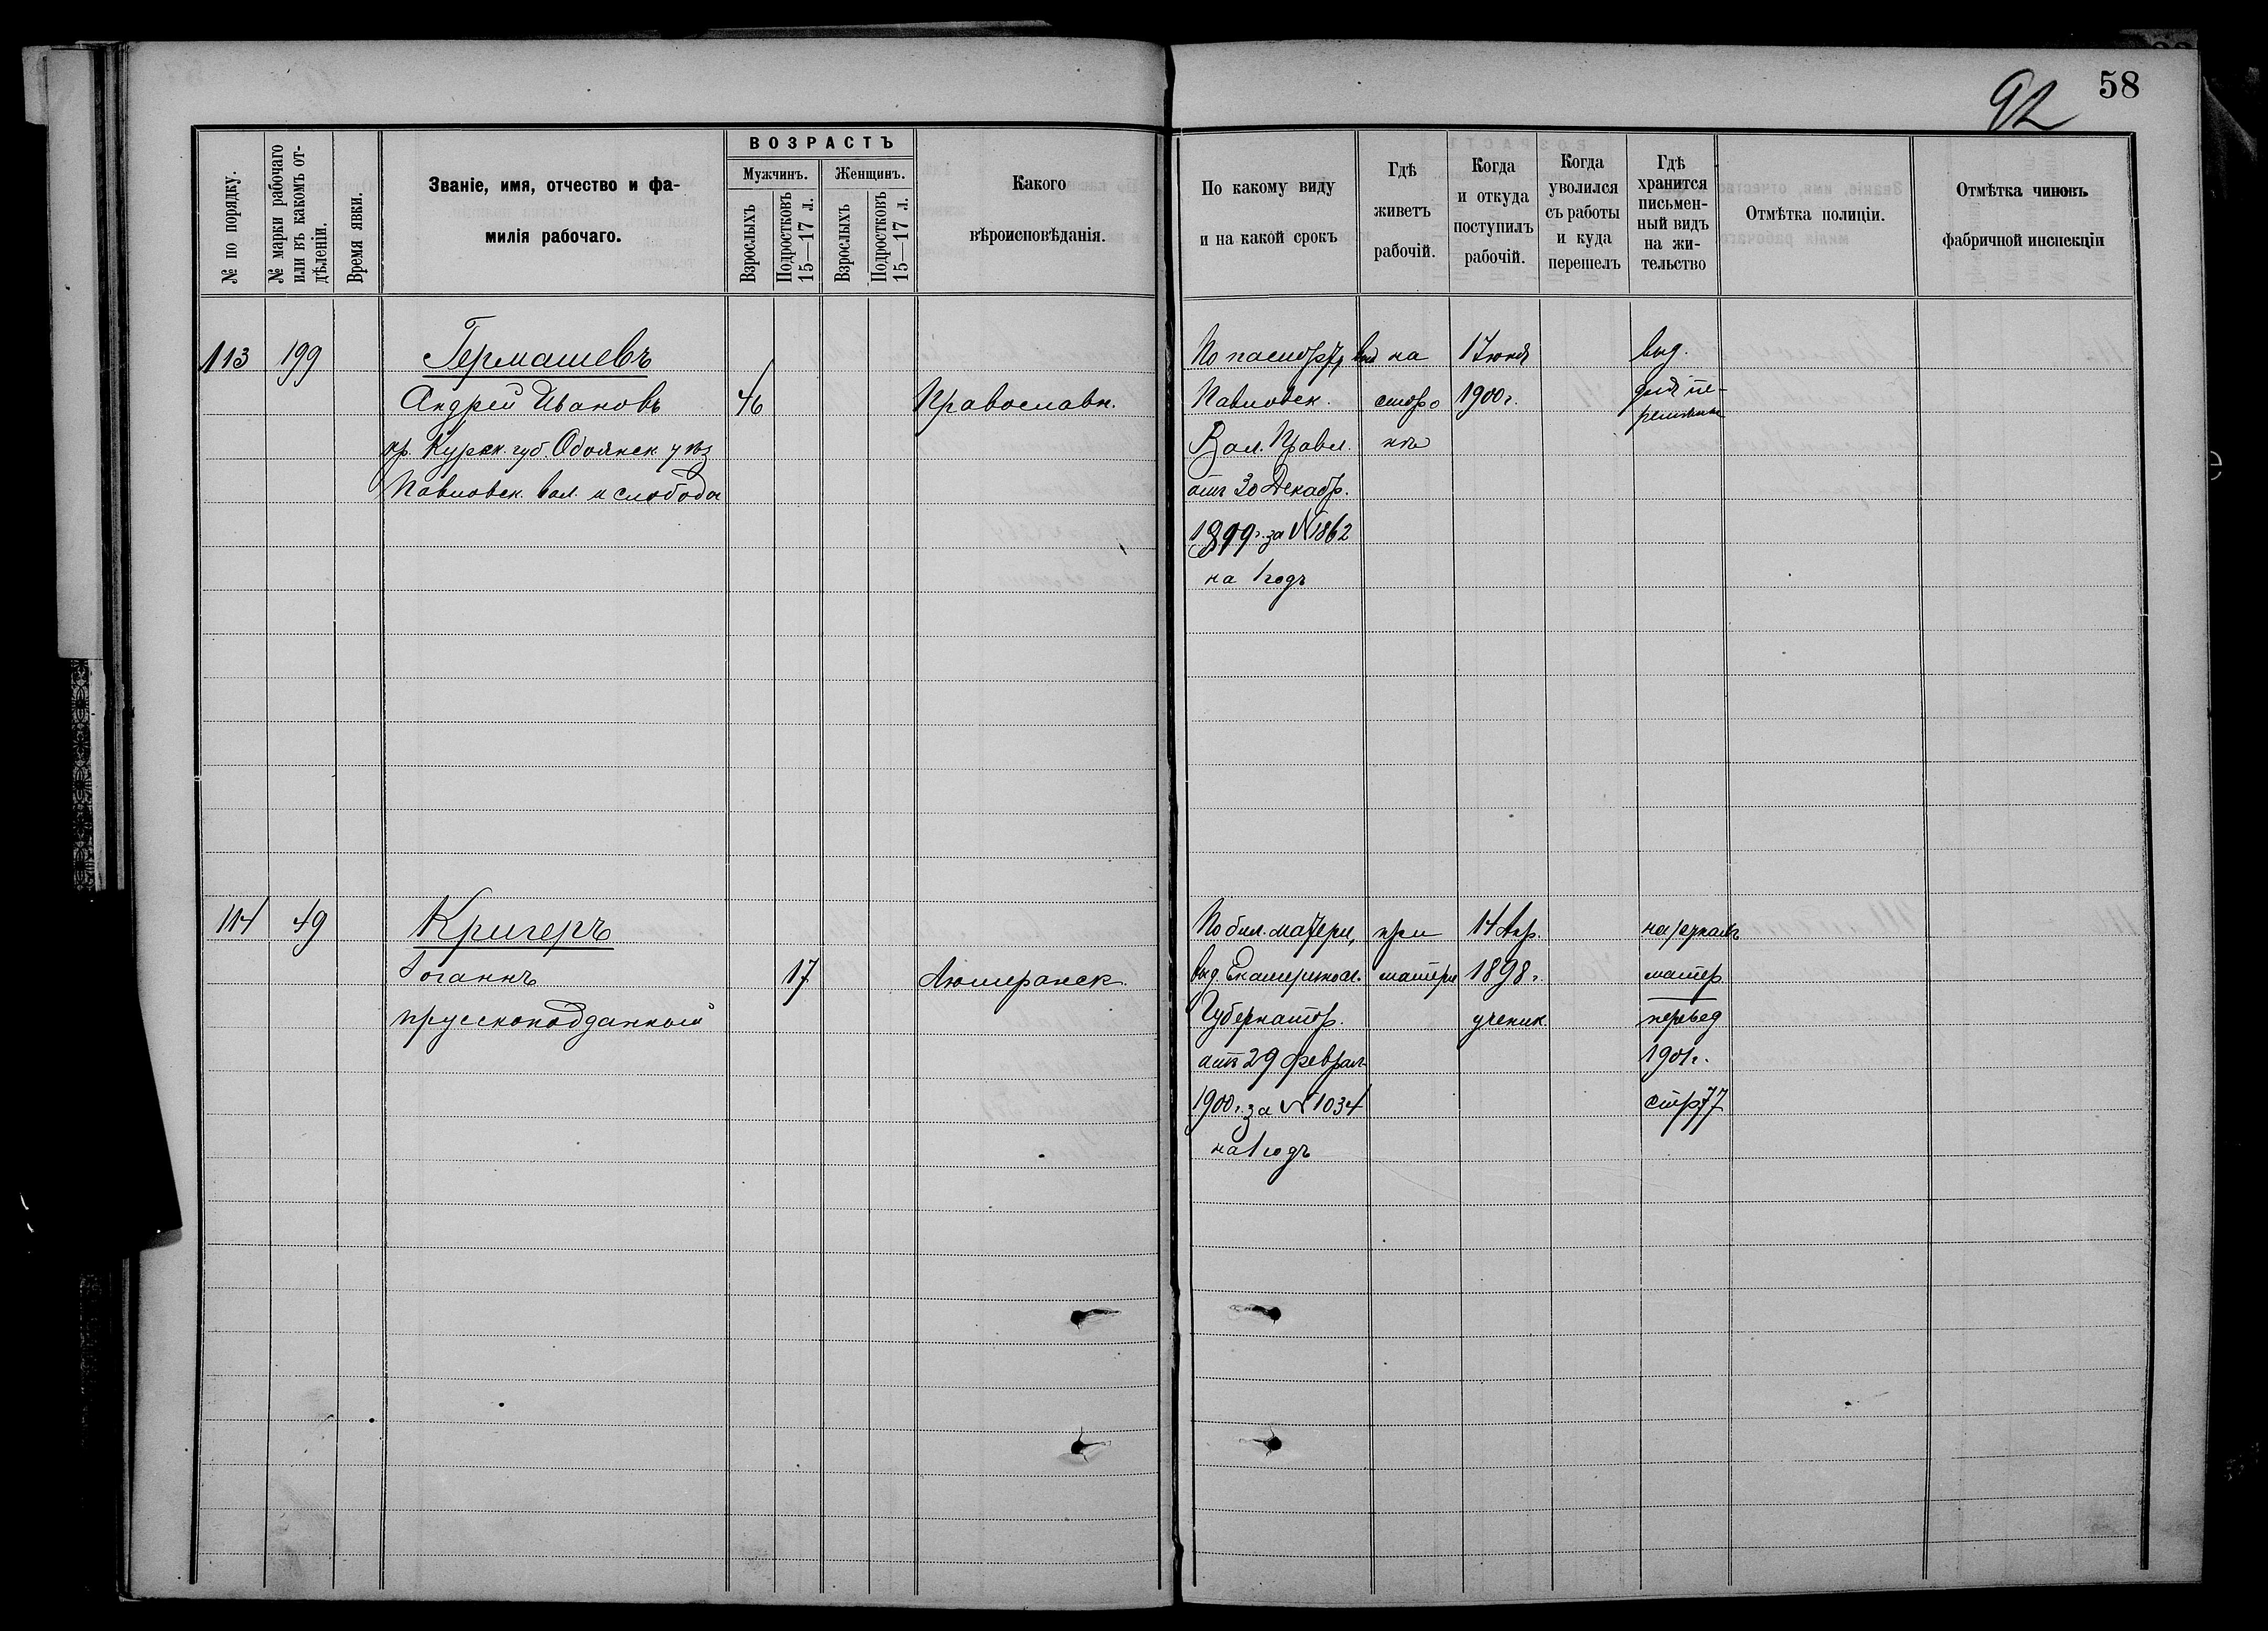 92
58
№ по порядку.
№ марки рабочаго или въ какомъ отдѣленіи.
Время явки.
Званіе, имя, отчество и фа-
милія рабочаго.
ВОЗРАСТЪ
Мужчинъ.
Женщинъ.
Взрослыхъ
Подростковъ 15—17 л.
Взрослыхъ
Подростковъ 15—17 л.
Какого
вѣроисповѣданія.
По какому виду
и на какой срокъ
Гдѣ
живетъ
рабочій.
Когда
и откуда
поступилъ
рабочій.
Когда
уволился
съ работы
и куда
перешелъ
Гдѣ
хранится
письмен-
ный видъ
на жи-
тельство
Отмѣтка полиціи.
Отмѣтка чиновъ
фабричной инспекціи
113 199 Гермашевъ
Андрей Ивановъ 46 Православн.
кр. Курск. губ. Обоянск. уѣз
Павловск. вол. и слобода
По паспорту, выд на 1 Іюня выд.
Павловск. сторо 1900 г. для пе-
Вол. Правл. нѣ
отъ 30 Декабр.
1899 г. за № 1862
на 1 годъ
114 49 Кригеръ
Іоганнъ 17 Лютеранск.
прусскоподданный
По бил. матери, при 14 Апр.
выд. Екатериносл. матери 1898 г. матер
Губернатор. ученик. перевед
отъ 29 Феврал 1901 г.
1900 г. за № 1034 стр 77
на 1 годъ